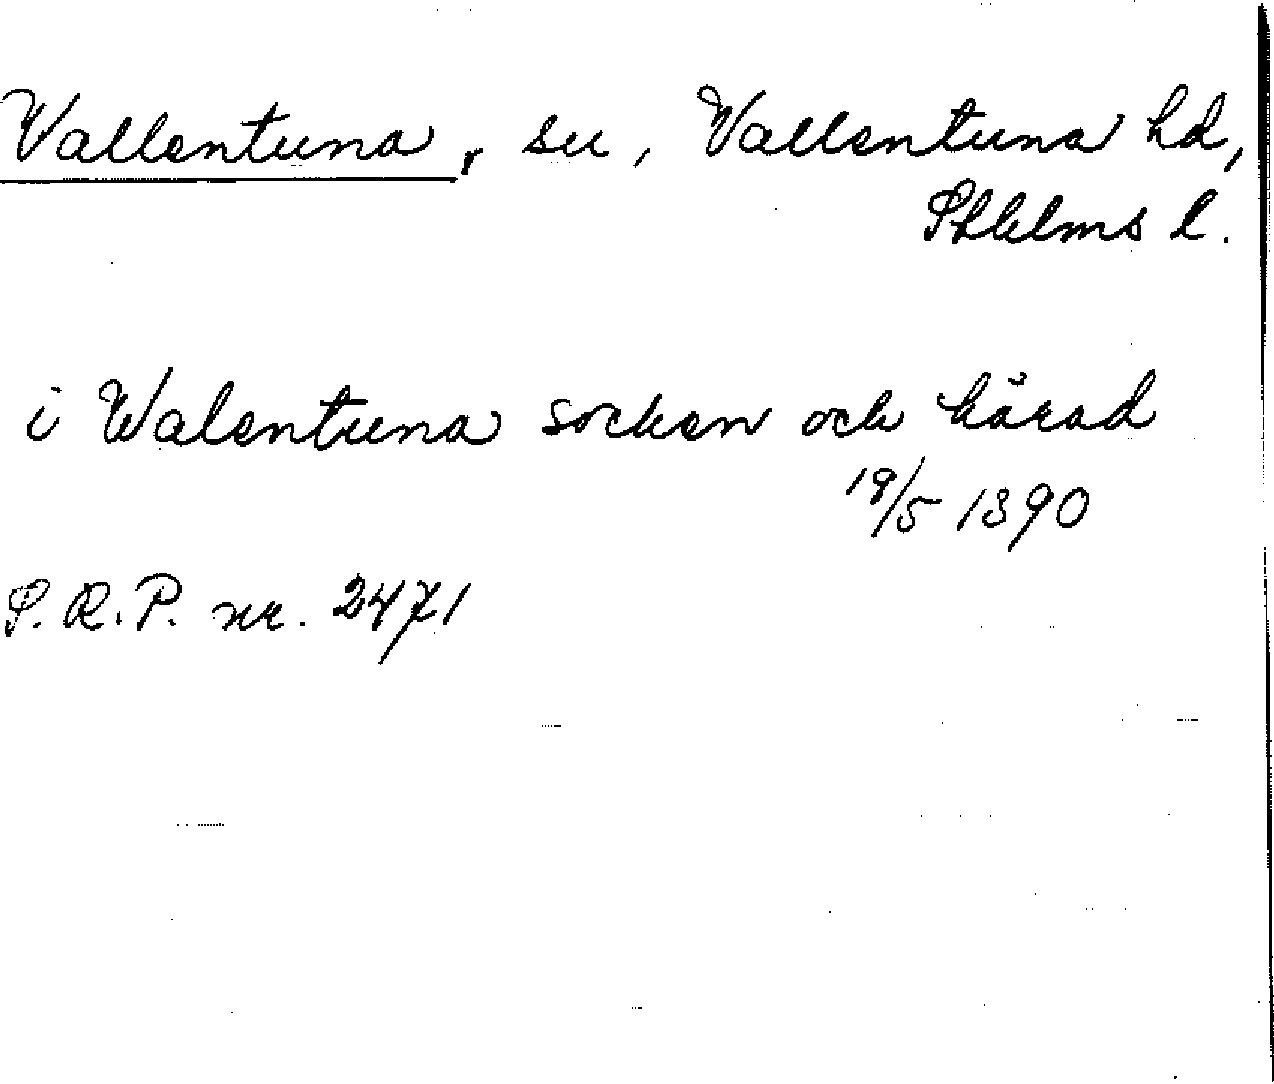 Vallentuna, sn, Vallentuna hd,
Sthlms l.
i Walentuna socken och härad
19/5 1390
S.R.P. nr. 2471